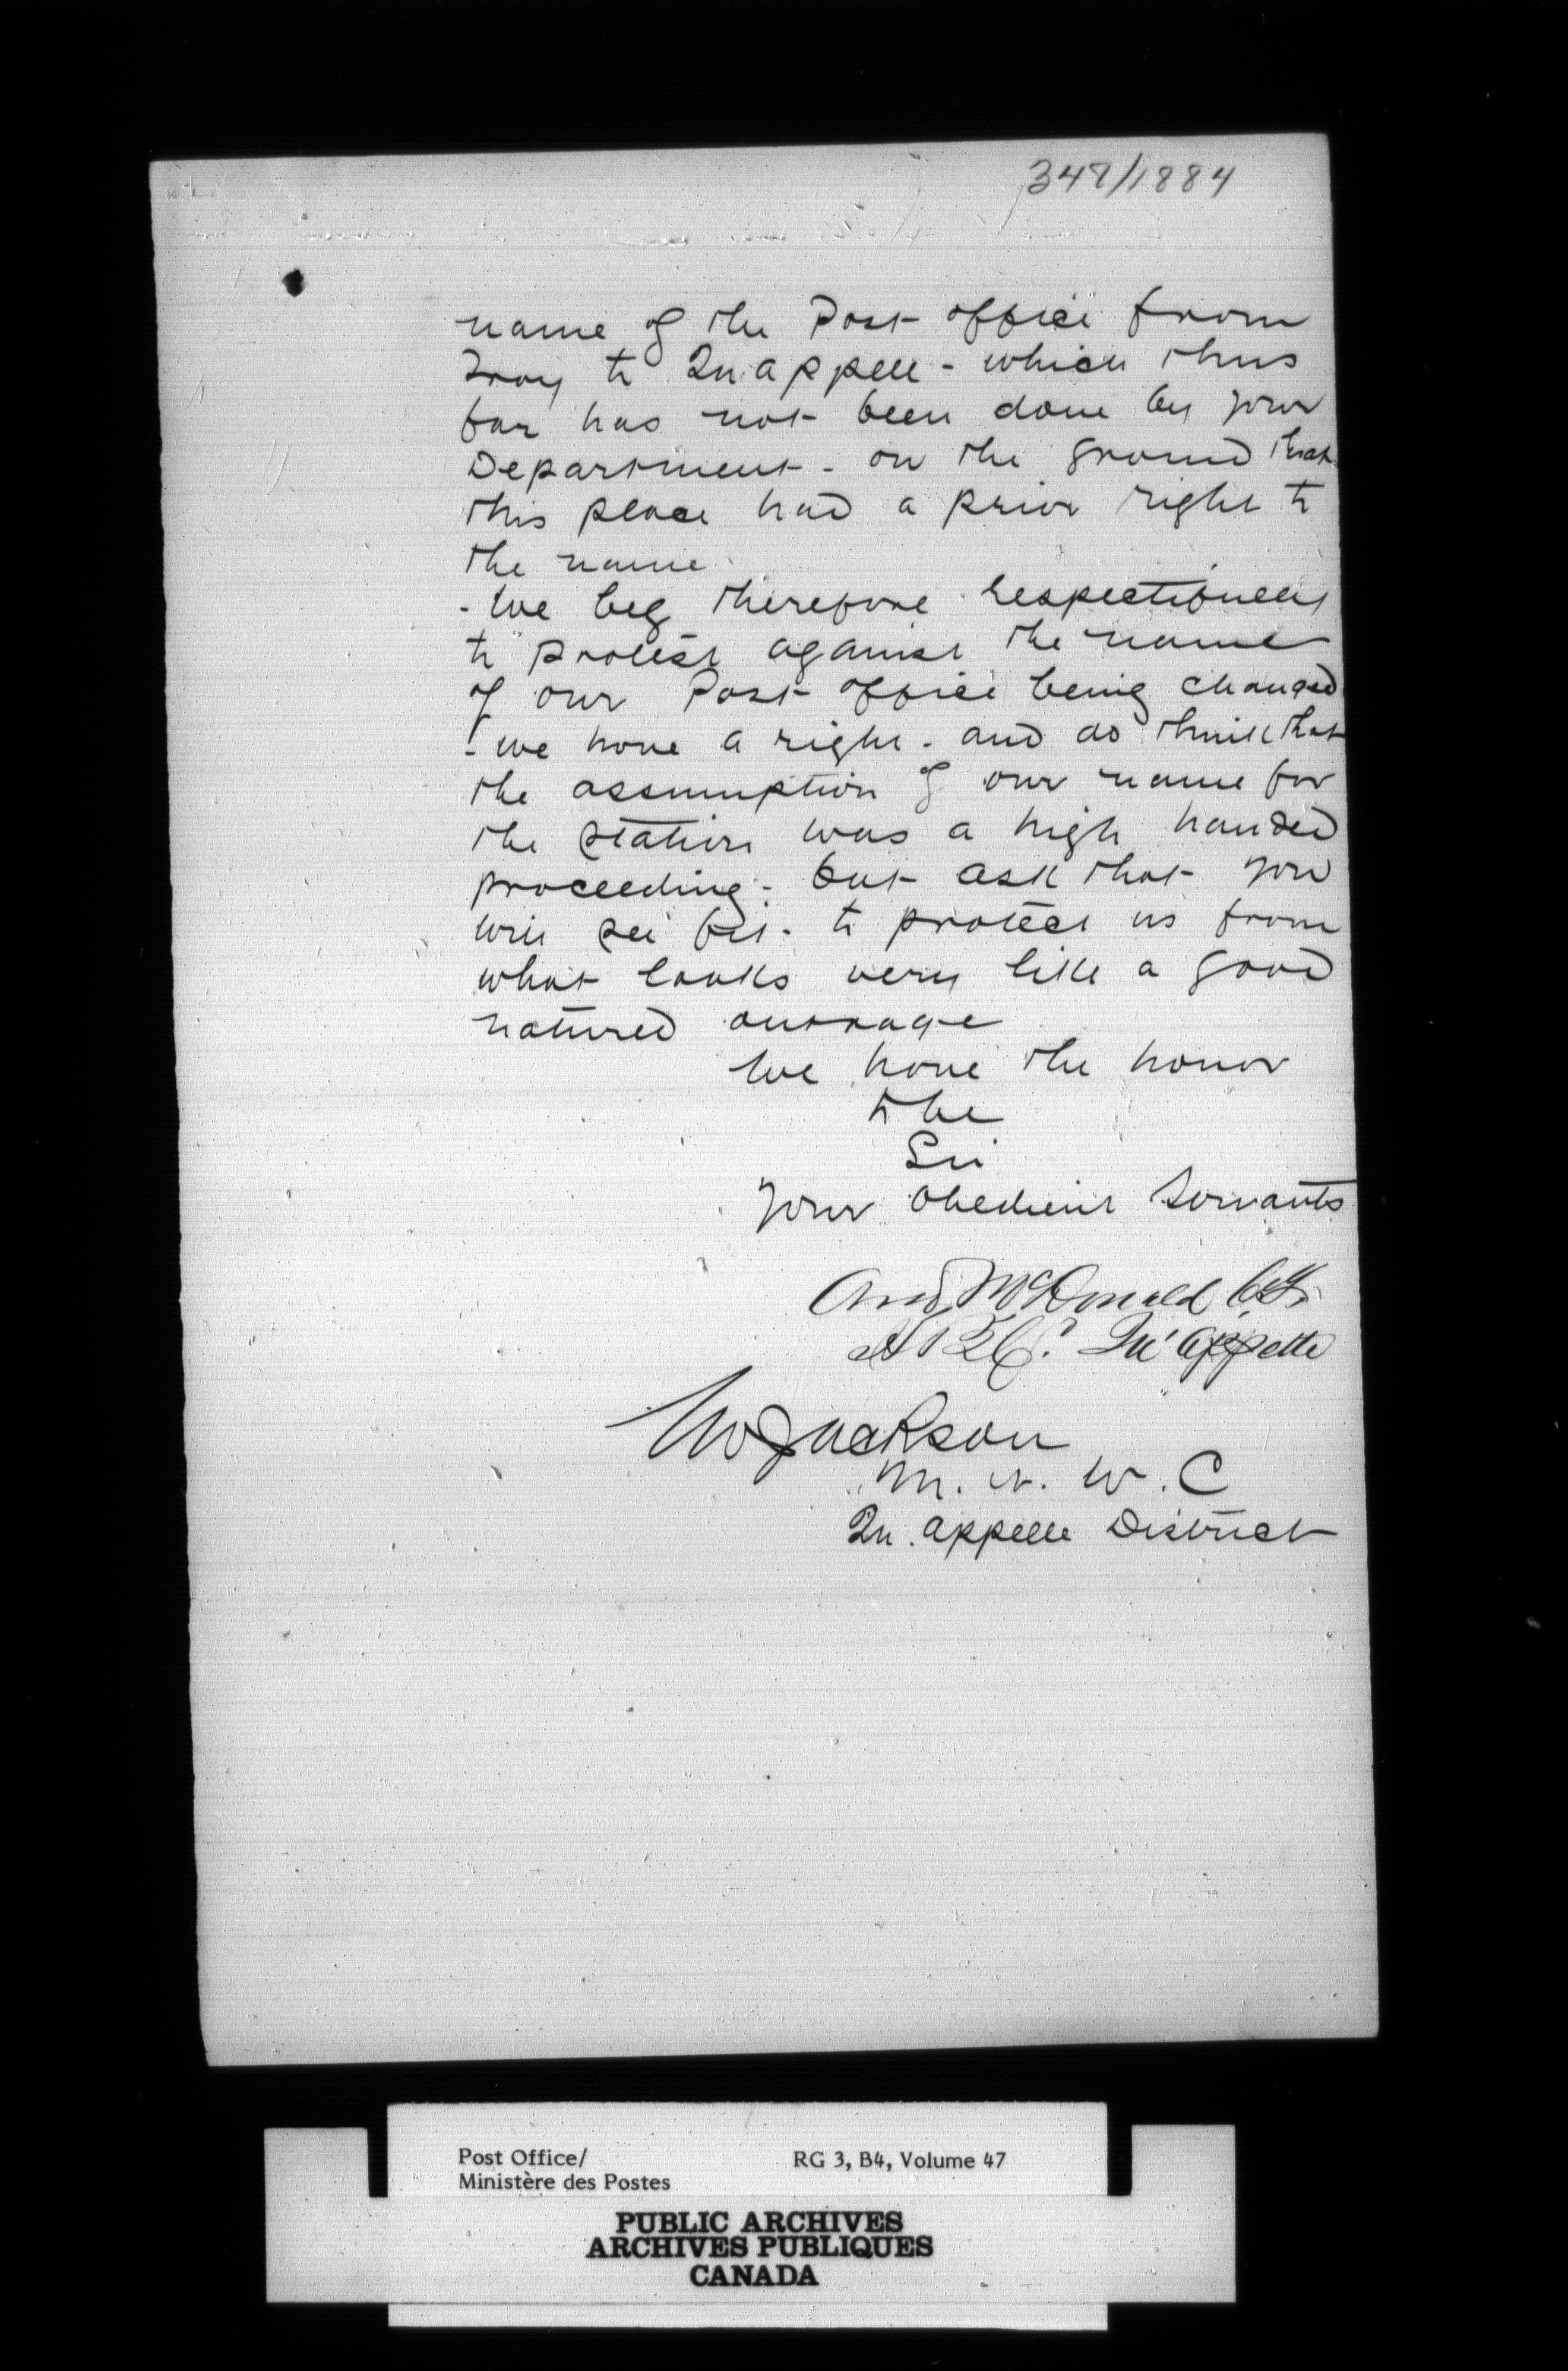 348/1884
name of the Post office from
Troy to Qu'appelle - which thus
far has not been done by your
Department - on the ground that
this place had a prior right to
the name
- We beg therefore respectfully
to protest against the name
of our Post office being changed
- we have a right - and do think that
the assumption of our name for
the station was a high handed
proceeding - but ask that you
will see fit - to protect us from
what looks very like a good
natured outrage
We have the honor
to be
Sir
Your Obedient Servants
Archd McDonald C.F.
H B C. Qu'appelle
W Jackson
M. N. W. C
Qu'appelle District
Post Office/ RG 3, B4, Volume 47
Ministère des Postes
PUBLIC ARCHIVES
ARCHIVES PUBLIQUES
CANADA